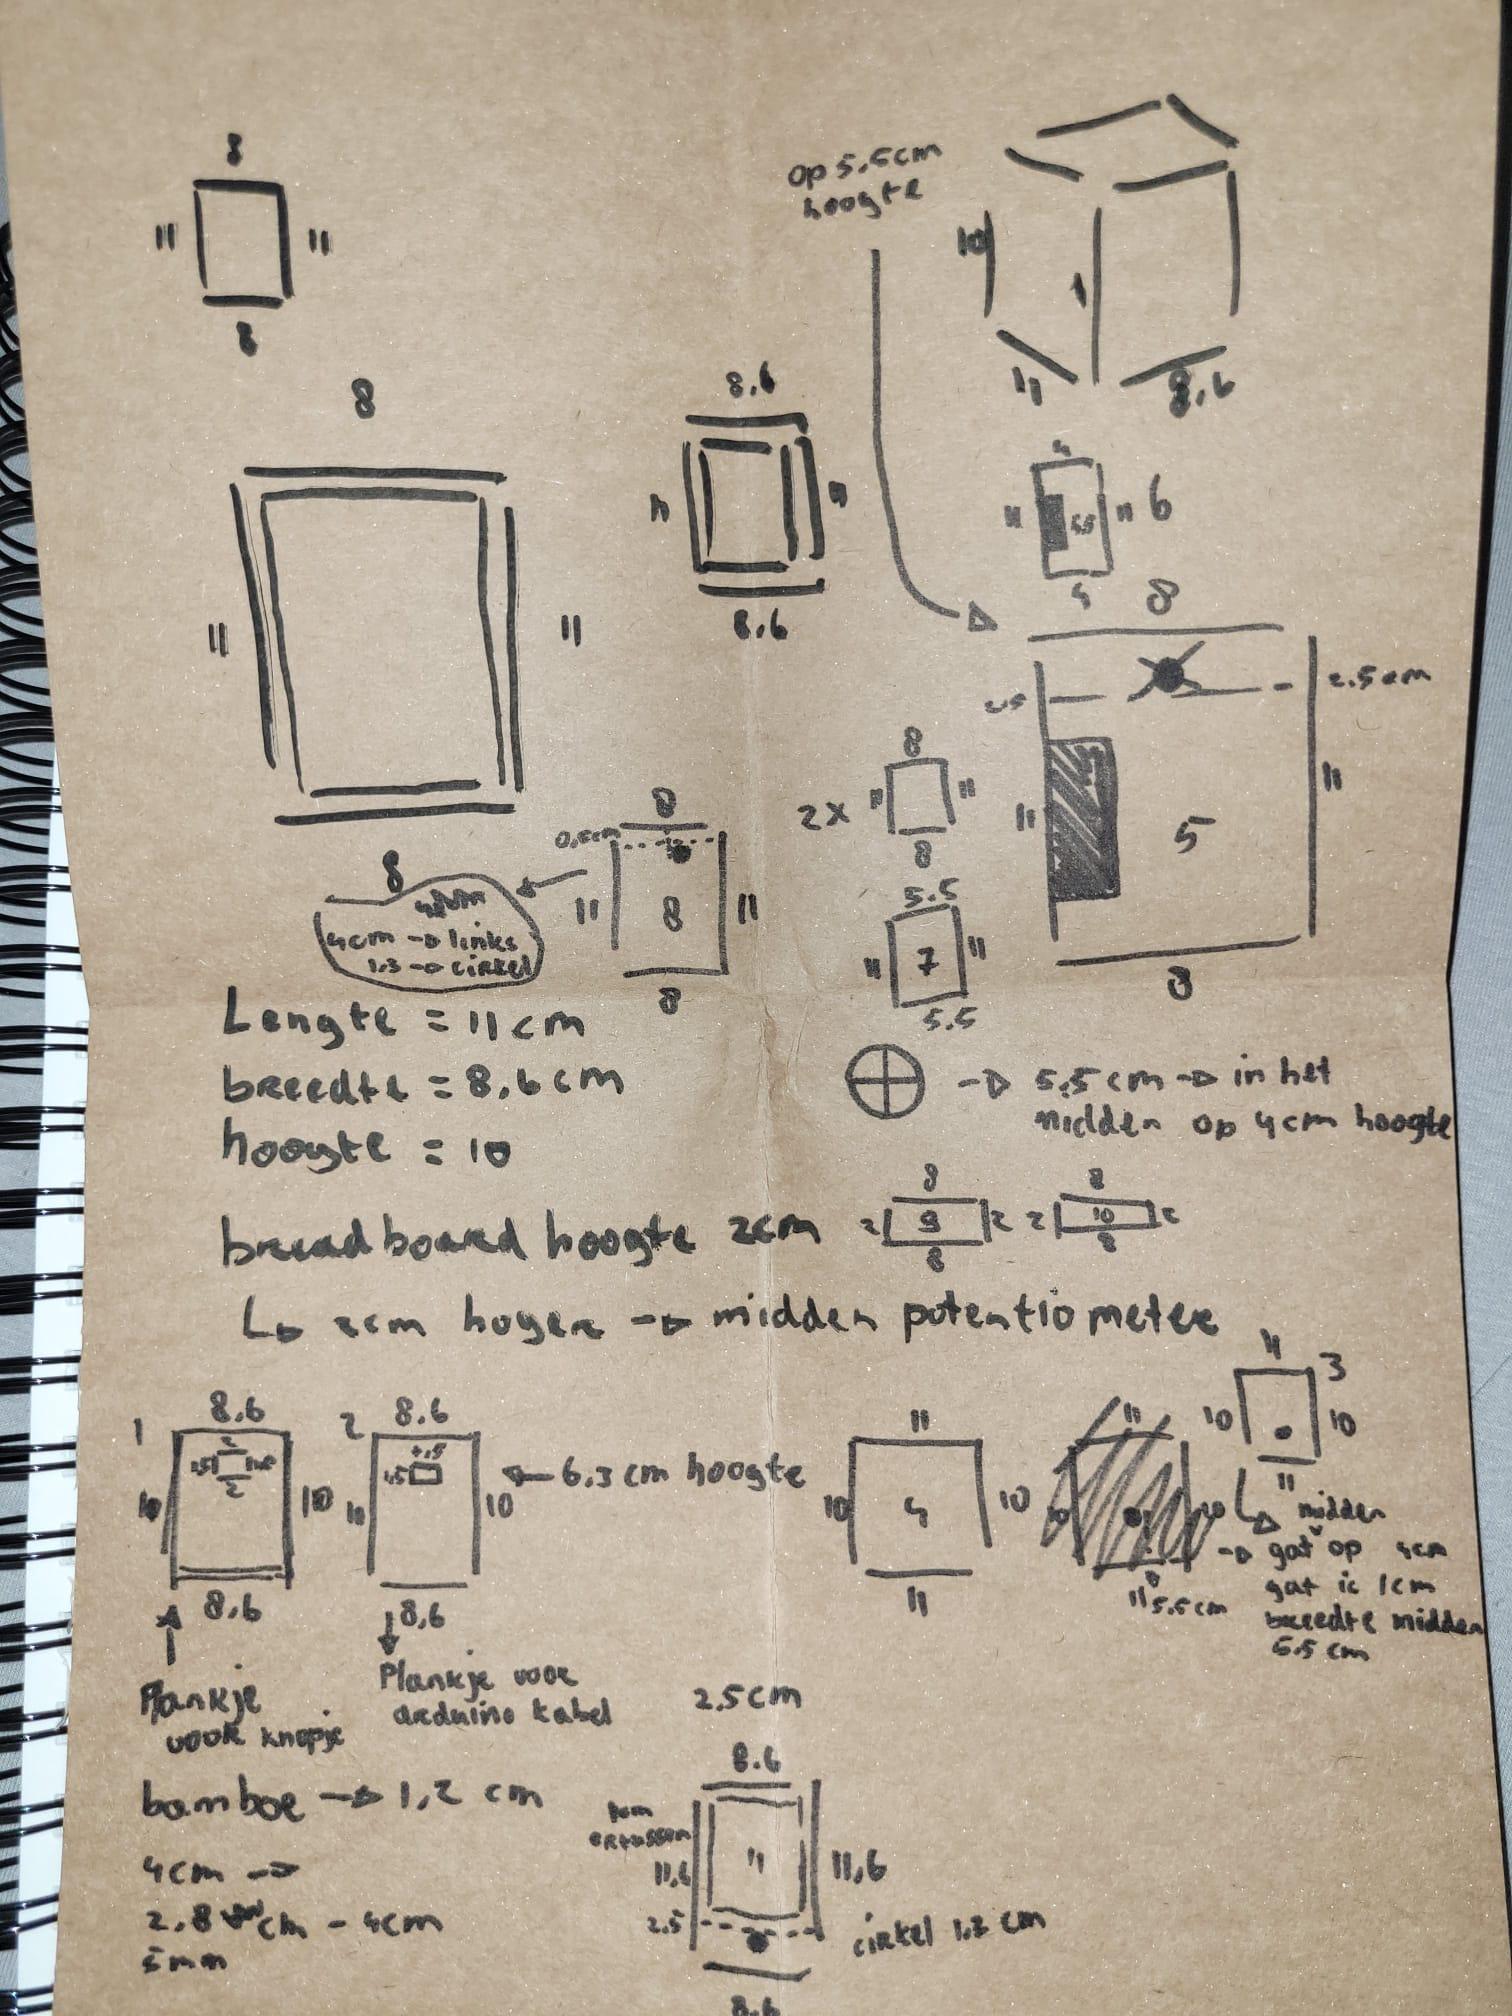 8
11 11
8
op 5.5cm
hoogte
10
11 8.6
8
8.6
11
8.6
11 11
8
4
11 6
4
8
2.5cm
11 11
5
8
2x
8
11 11
8
5.5
11 7 11
5.5
8
11 8 11
8
4cm → links
1.3 → cirkel
Lengte = 11cm
breedte = 8,6cm
hoogte = 10
⊕ → 5.5cm → in het
midden op 4cm hoogte
breadboard hoogte 2cm
8 8
2 9 2 2 10 2
8 8
↳ 2cm hoger → midden potentiometer
1 8.6
2
2
10 10
8.6
Plankje
voor knopje
2 8.6
1.5
11 10
← 6.3cm hoogte
8,6
Plankje voor
arduino kabel
11
10 4 10
11
11
5.5cm
11 3
10 10
11
midden
→ gat op 4cm
gat is 1cm
breedte midden
5.5 cm
2.5cm
bamboe → 1,2 cm
4cm →
2.8 cm - 4cm
5mm
8.6
ertussen
11,6 11 11,6
2.5
cirkel 1.3 cm
8.6